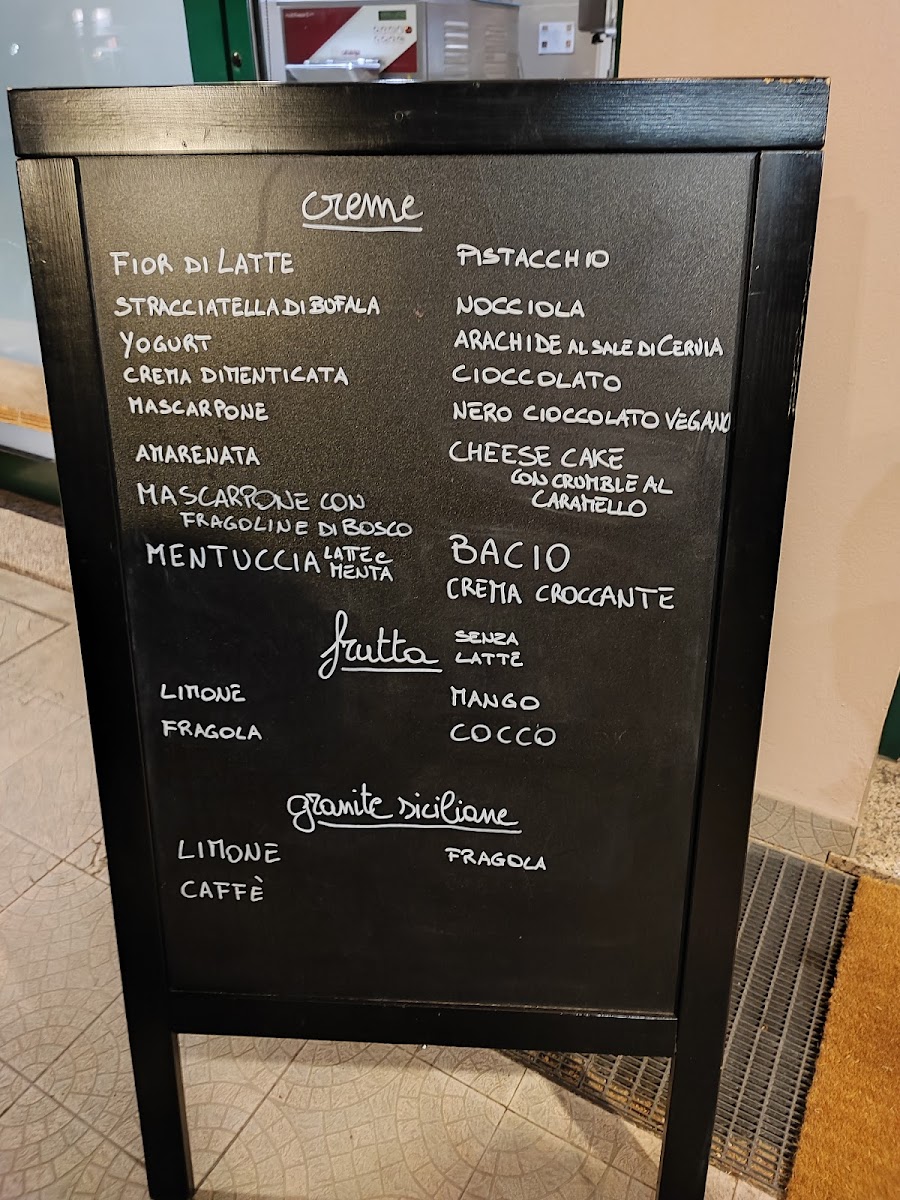 creme
FIOR DI LATTE
STRACCIATELLA DI BUFALA
YOGURT
CREMA DIMENTICATA
MASCARPONE
AMARENATA
MASCARPONE CON
FRAGOLINE DI BOSCO
MENTUCCIA LATTE e
MENTA
PISTACCHIO
NOCCIOLA
ARACHIDE AL SALE DI CERVIA
CIOCCOLATO
NERO CIOCCOLATO VEGANO
CHEESE CAKE
CON CRUMBLE AL
CARAMELLO
BACIO
CREMA CROCCANTE
frutta SENZA
LATTE
LIMONE
FRAGOLA
MANGO
COCCO
granite siciliane
LIMONE
CAFFÈ
FRAGOLA